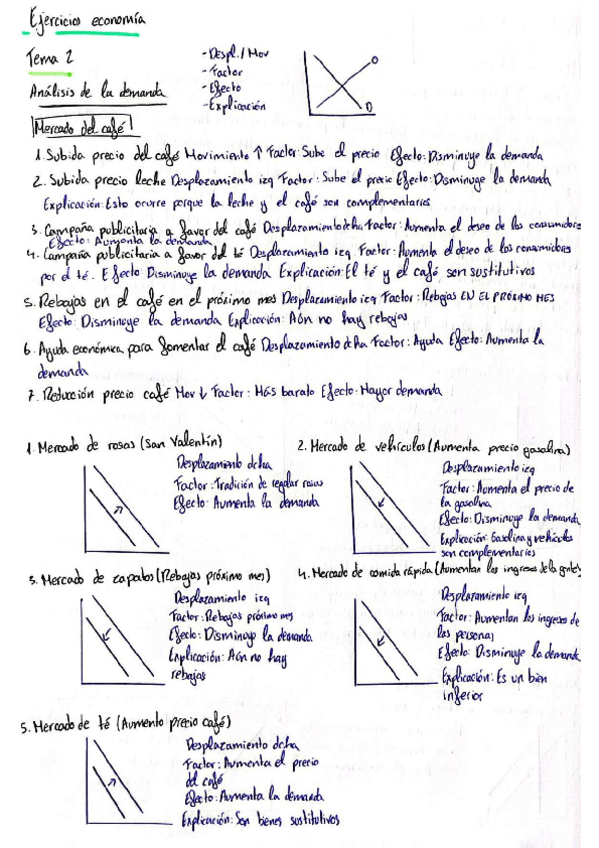 Ejercicios economía
Tema 2
Análisis de la demanda
- Despl./Mov
- Factor
- Efecto
- Explicación
O
D
Mercado del café
1. Subida precio del café Movimiento ↑ Factor: Sube el precio Efecto: Disminuye la demanda
2. Subida precio leche Desplazamiento izq Factor: Sube el precio Efecto: Disminuye la demanda
Explicación: Esto ocurre porque la leche y el café son complementarios
3. Campaña publicitaria a favor del café Desplazamiento dcha Factor: Aumenta el deseo de los consumidores
Efecto: Aumenta la demanda
4. Campaña publicitaria a favor del té Desplazamiento izq Factor: Aumenta el deseo de los consumidores
por el té. Efecto: Disminuye la demanda Explicación: El té y el café son sustitutivos
5. Rebajas en el café en el próximo mes Desplazamiento izq Factor: Rebajas EN EL PRÓXIMO MES
Efecto: Disminuye la demanda Explicación: Aún no hay rebajas
6. Ayuda económica para fomentar el café Desplazamiento dcha Factor: Ayuda Efecto: Aumenta la
demanda
7. Reducción precio café Mov ↓ Factor: Más barato Efecto: Mayor demanda
1. Mercado de rosas (San Valentín)
Desplazamiento dcha
Factor: Tradición de regalar rosas
Efecto: Aumenta la demanda
2. Mercado de vehículos (Aumenta precio gasolina)
Desplazamiento izq
Factor: Aumenta el precio de
la gasolina
Efecto: Disminuye la demanda
Explicación: Gasolina y vehículos
son complementarios
3. Mercado de zapatos (Rebajas próximo mes)
Desplazamiento izq
Factor: Rebajas próximo mes
Efecto: Disminuye la demanda
Explicación: Aún no hay
rebajas
4. Mercado de comida rápida (Aumentan los ingresos de la gente)
Desplazamiento izq
Factor: Aumentan los ingresos de
las personas
Efecto: Disminuye la demanda
Explicación: Es un bien
inferior
5. Mercado de té (Aumento precio café)
Desplazamiento dcha
Factor: Aumenta el precio
del café
Efecto: Aumenta la demanda
Explicación: Son bienes sustitutivos